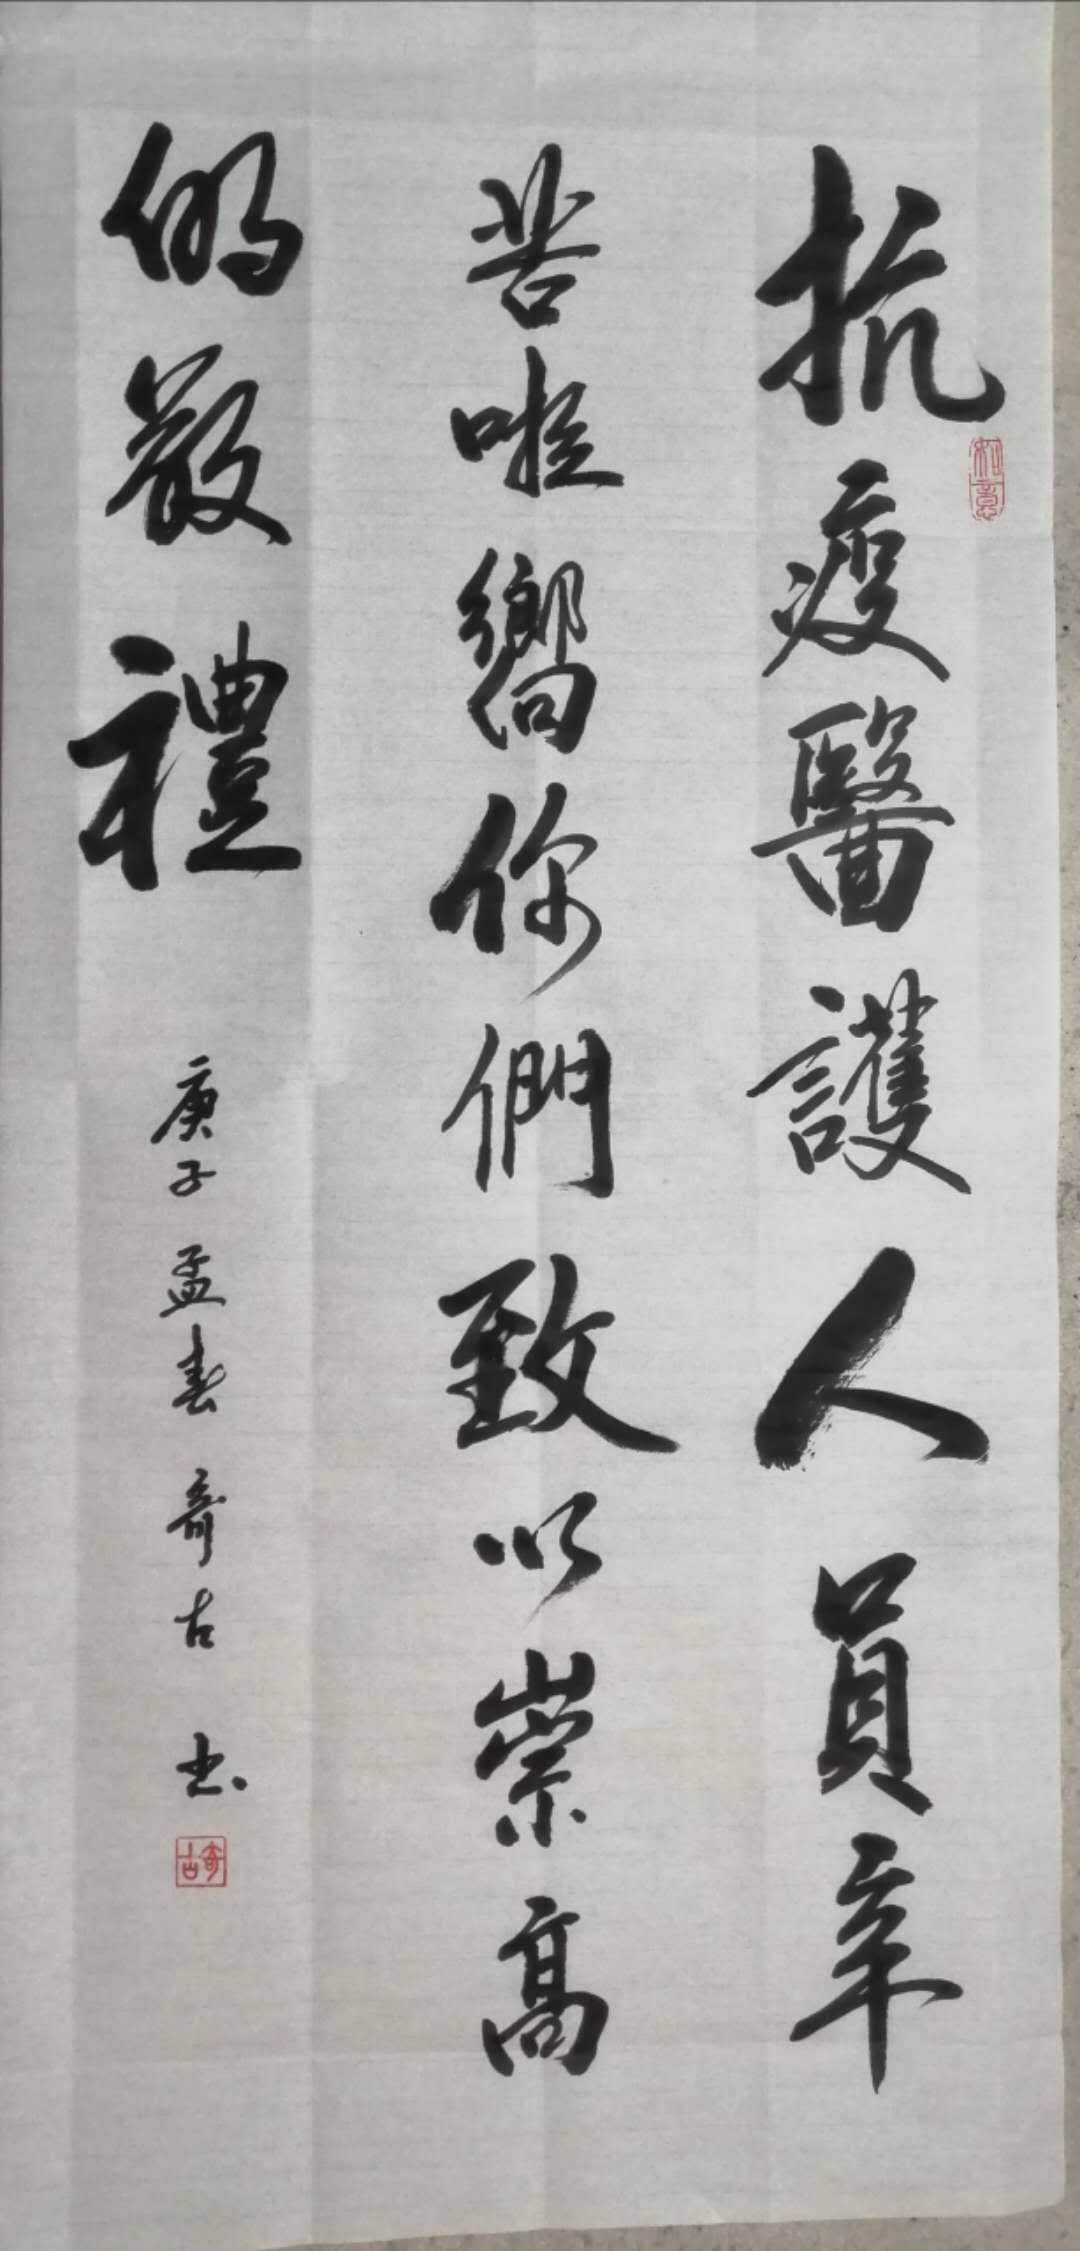 抗疫醫護人員辛
苦啦嚮你們致以崇高
的敬禮
庚子孟春奇古书
如意
奇古